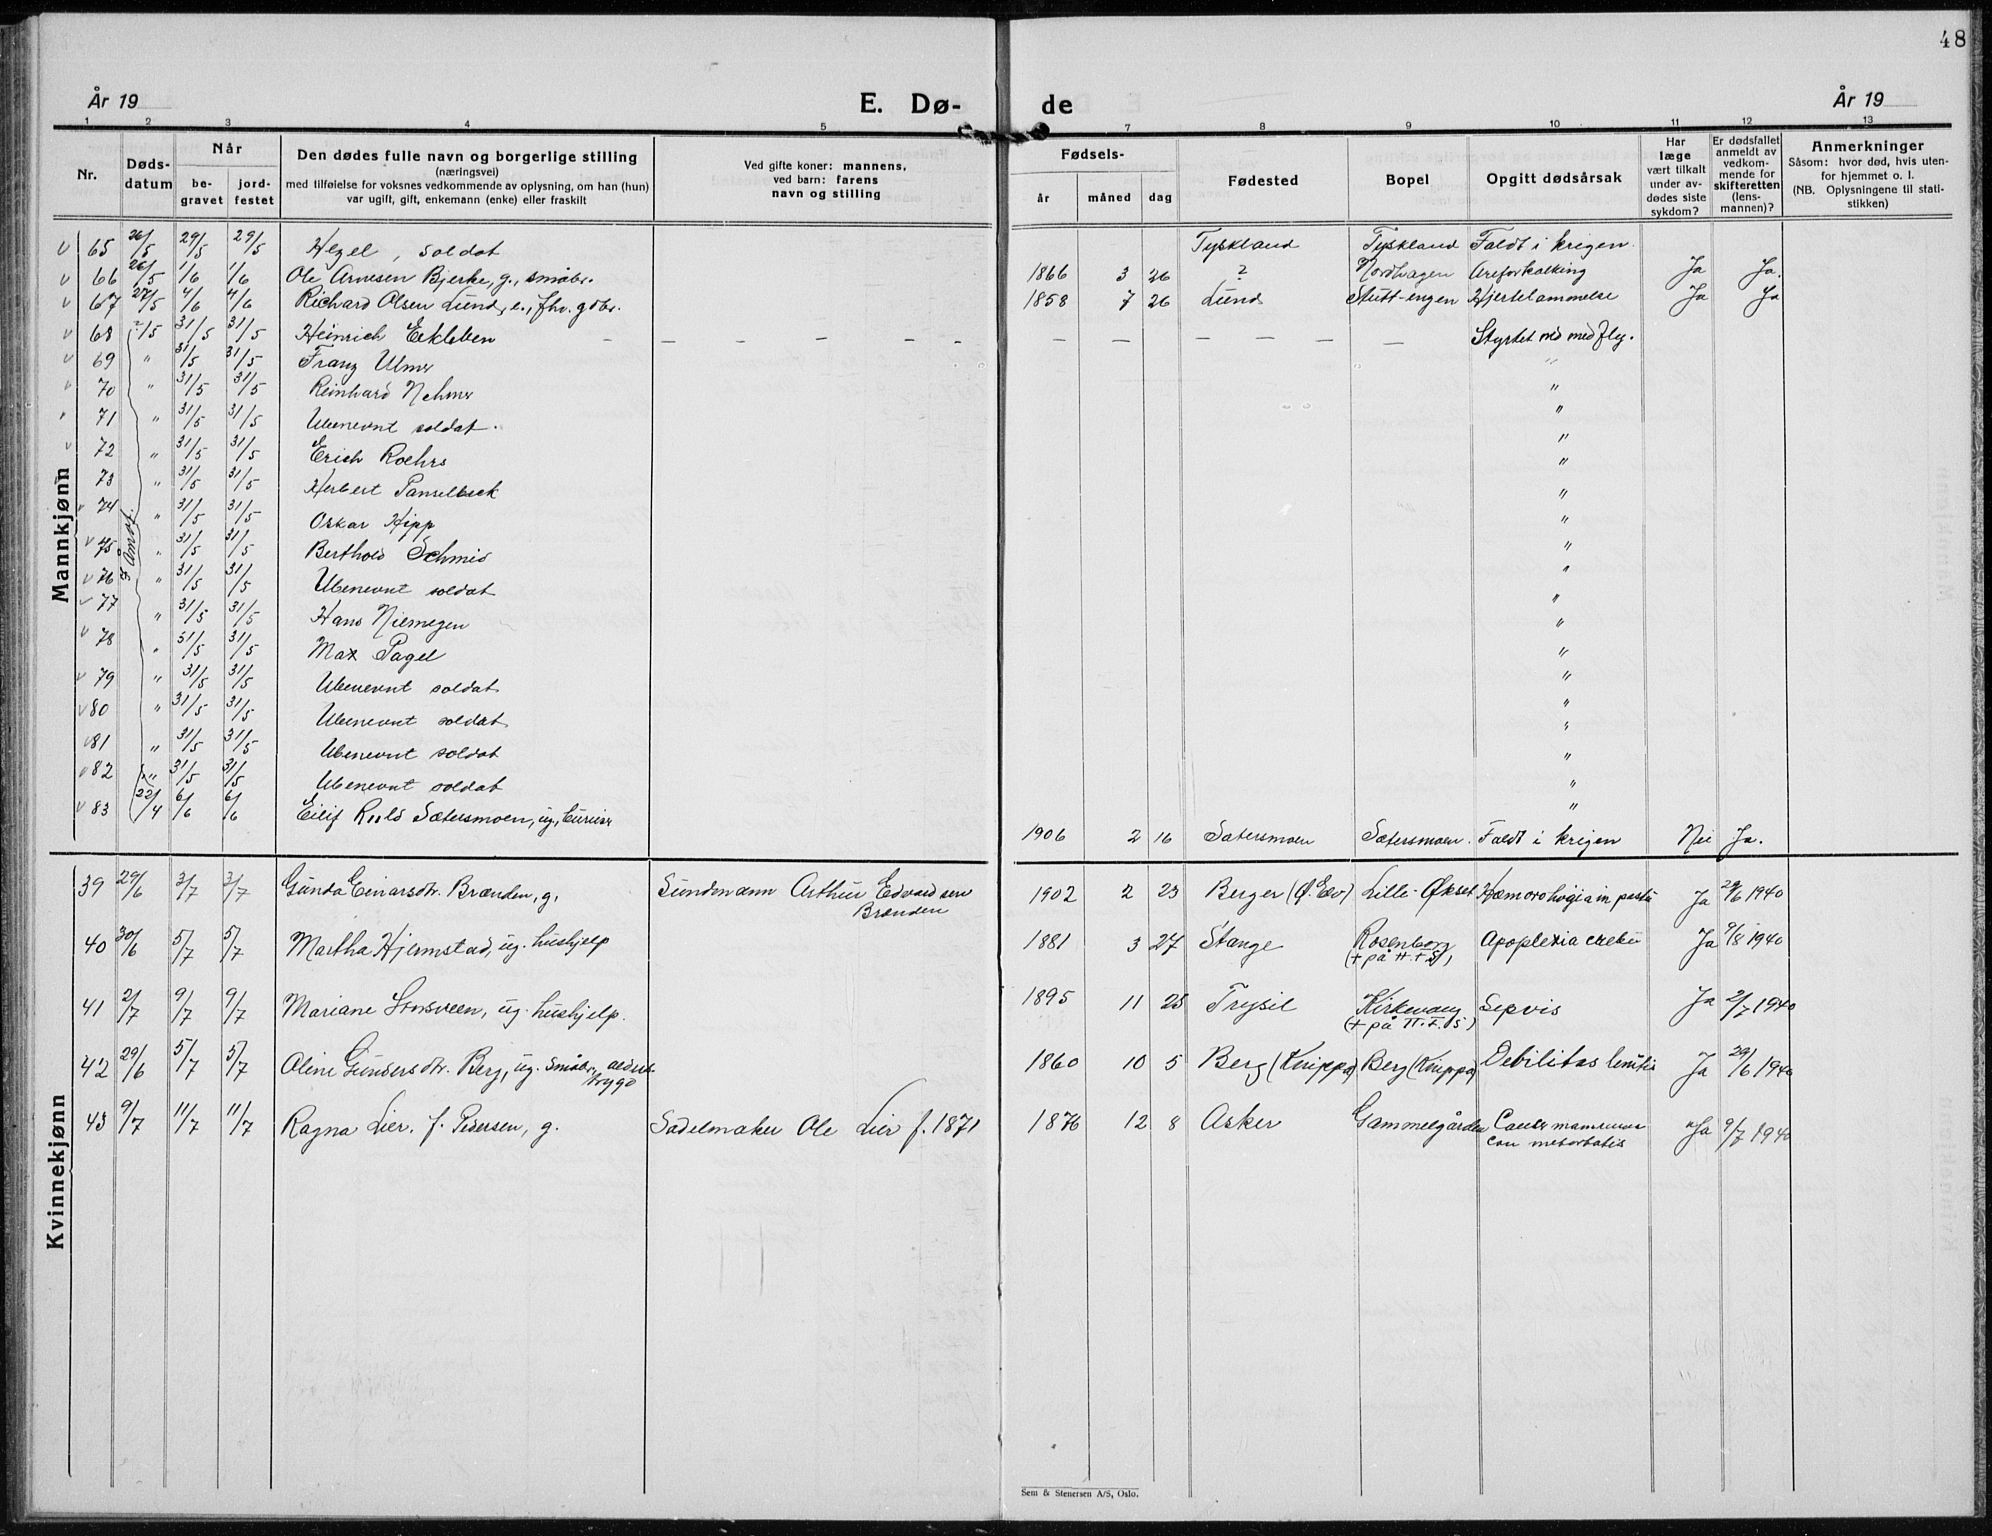 48
År 19 E. Dø- de År 19
1 2 3 4 5 7 8 9 10 11 12 13
Nr. Døds-datum Når be-gravet jord-festet Den dødes fulle navn og borgerlige stilling (næringsvei) med tilføielse for voksnes vedkommende av oplysning, om han (hun) var ugift, gift, enkemann (enke) eller fraskilt Ved gifte koner: mannens, ved barn: farens navn og stilling Fødsels- år måned dag Fødested Bopel Opgitt dødsårsak Har læge vært tilkalt under av-dødes siste sykdom? Er dødsfallet anmeldt av vedkom-mende for skifteretten (lens-mannen)? Anmerkninger Såsom: hvor død, hvis uten-for hjemmet o. l. (NB. Oplysningene til stati-stikken)
Mannkjønn
65 26/5 29/5 29/5 Hezel, soldat Tyskland Tyskland Faldt i krigen
66 26/5 1/6 1/6 Ole Arnesen Bjerke, g., småbr. 1866 3 26 ? Nordhagen Åreforkalking Ja Ja.
67 27/5 4/6 4/6 Richard Olsen Lund, e., fhv. gdbr. 1858 7 26 Lund Hjertelammelse Ja Ja
68 ?/5 31/5 31/5 Heinrich Eekleben – – – – – – – – – – – – Styrtet ned med fly.
69 " 31/5 31/5 Franz Ulmer "
70 " 31/5 31/5 Reinhard Nehmer "
71 " 31/5 31/5 Ubenevnt soldat. "
72 " 31/5 31/5 Erich Roehrs "
73 " 31/5 31/5 Herbert Panselbeck "
74 " 31/5 31/5 Oskar Hipp "
75 " 31/5 31/5 Berthold Schmid "
I Åmot.
76 " 31/5 31/5 Ubenevnt soldat "
77 " 31/5 31/5 Hans Niemegen "
78 " 31/5 31/5 Max Pagel "
79 " 31/5 31/5 Ubenevnt soldat "
80 " 31/5 31/5 Ubenevnt soldat "
81 " 31/5 31/5 Ubenevnt soldat "
82 " 31/5 31/5 Ubenevnt soldat "
83 22/4 6/6 6/6 Eilif Sætersmoen, ug., 1906 2 16 Sætersmoen Sætersmoen. Faldt i krigen Nei Ja.
Kvinnekjønn
39 29/6 3/7 3/7 Gunda Einarsdtr. Brænden, g, Sundmann Arthur Edvardsen Brænden 1902 2 23 Berger (Ø. Elv) Lille-Økset Ja 29/6 1940
40 30/6 5/7 5/7 Martha Hjermstad, ug. hushjelp 1881 3 27 Stange Rosenborg Apoplexia cerebri Ja 1940
41 2/7 9/7 9/7 Mariane Storsveen, ug. hushjelp. 1895 11 25 Trysil Kirkevang Sepsis Ja 2/7 1940
42 29/6 5/7 5/7 Oline Gundersdtr. Berg, ug. småbr, alderstrygd 1860 10 5 Berg (Knippa) Berg (Knippa) Debilitas senilis Ja 29/6 1940
43 9/7 11/7 11/7 Ragna Lier. f. Pedersen, g. Sadelmaker Ole Lier f. 1871 1876 12 8 Asker Gammelgården Ja 9/7 1940
Sem & Stenersen A/S, Oslo.